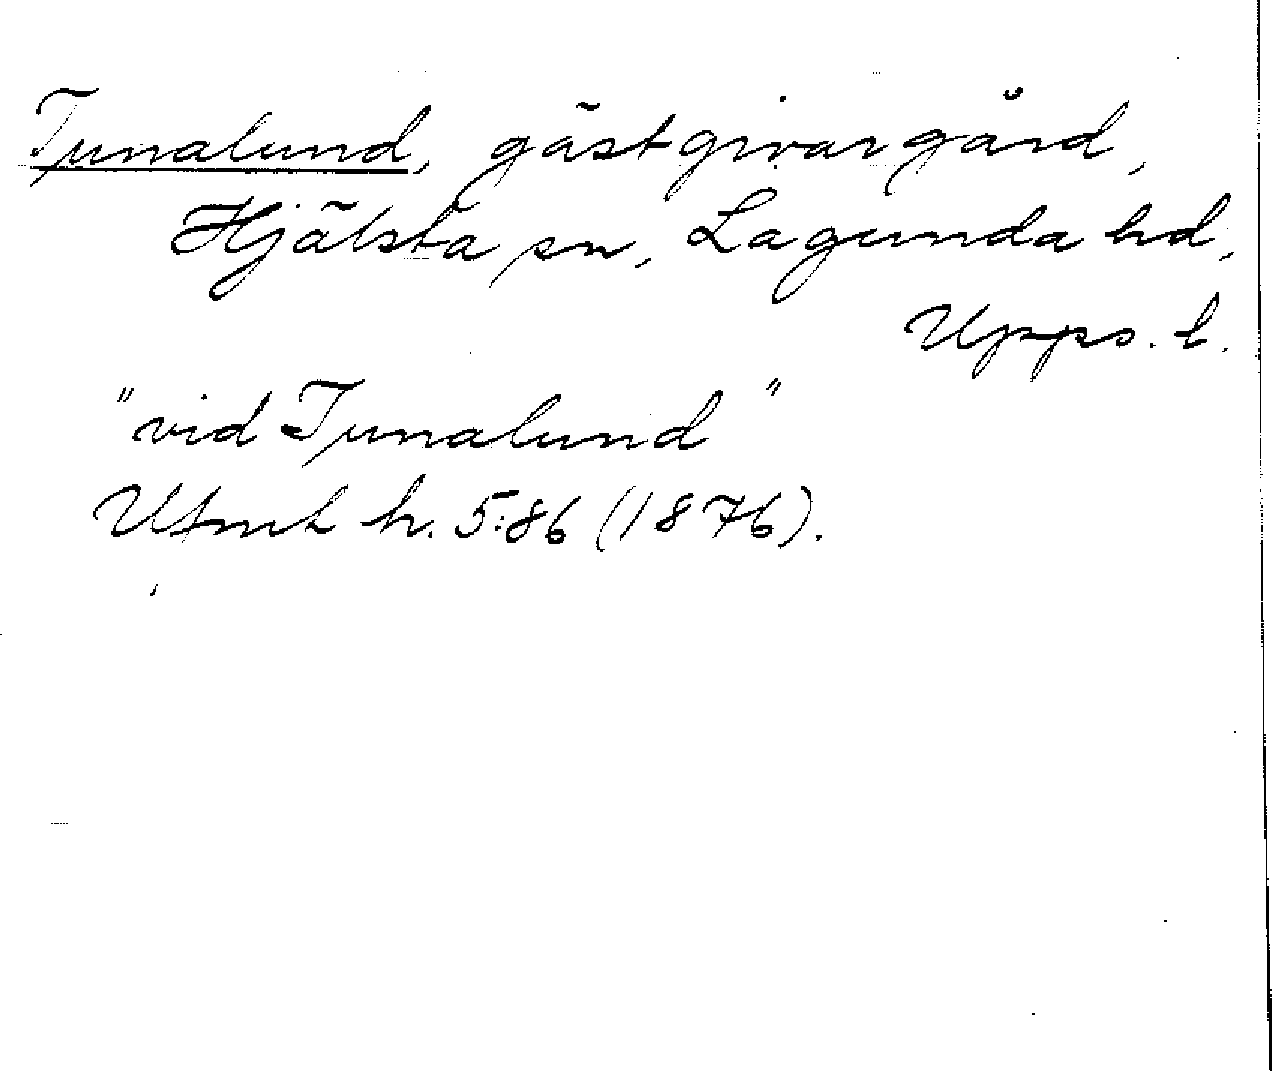 Tunalund, gästgivargård,
Hjälsta sn, Lagunda hd,
Upps. l.
"vid Tunalund"
h. 5:86 (1876).